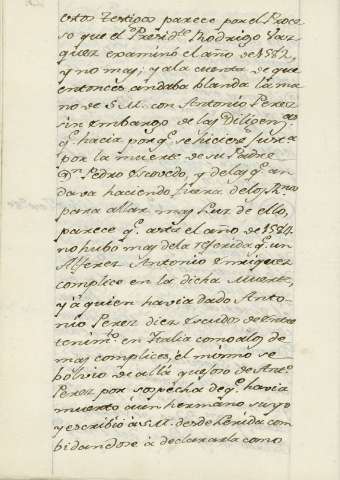 estos Testigos parece por el Proce-
so que el Presid.te Rodrigo Vaz-
quez examinó el año de 1582,
y no mas; y a la cuenta de que
entonces andaba blanda la ma-
no de S. M. con Antonio Perez
sin embargo de las Diligen.as
q.e hacia por q.e se hiciese Just.a
por la muerte de su Padre
D.n Pedro Escovedo, y de las q.e an-
daba haciendo fuera de los
para allar mas luz de ello,
parece q.e asta el año de 1584
no hubo mas de la referida q.e un
Alferez Antonio Enriquez
complice en la dicha Muerte,
y á quien havia dado Anto-
nio Perez diez Escudos de Entre
tenim.to en Italia como a los de
mas complices, el mismo se
bolvio de allá quejoso de Ant.o
Perez por sospecha de q.e havia
muerto á un hermano suyo
y escribió á S. M. desde Lerida com-
bidandose á declararla como